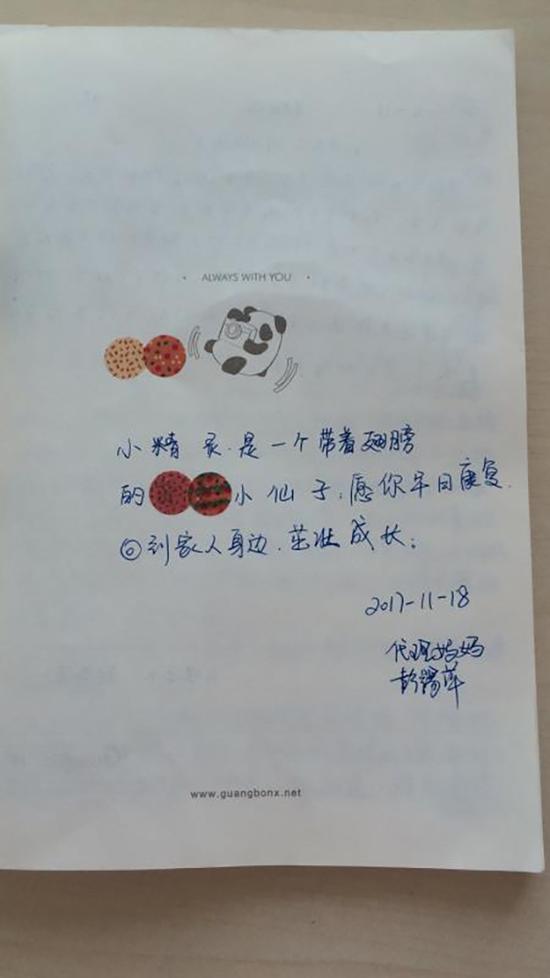 ALWAYS WITH YOU
小精灵.是一个带着翅膀
的小仙子;愿你早日康复.
回到家人身边.茁壮成长;
2017-11-18
代理妈妈
www.guangbonx.net